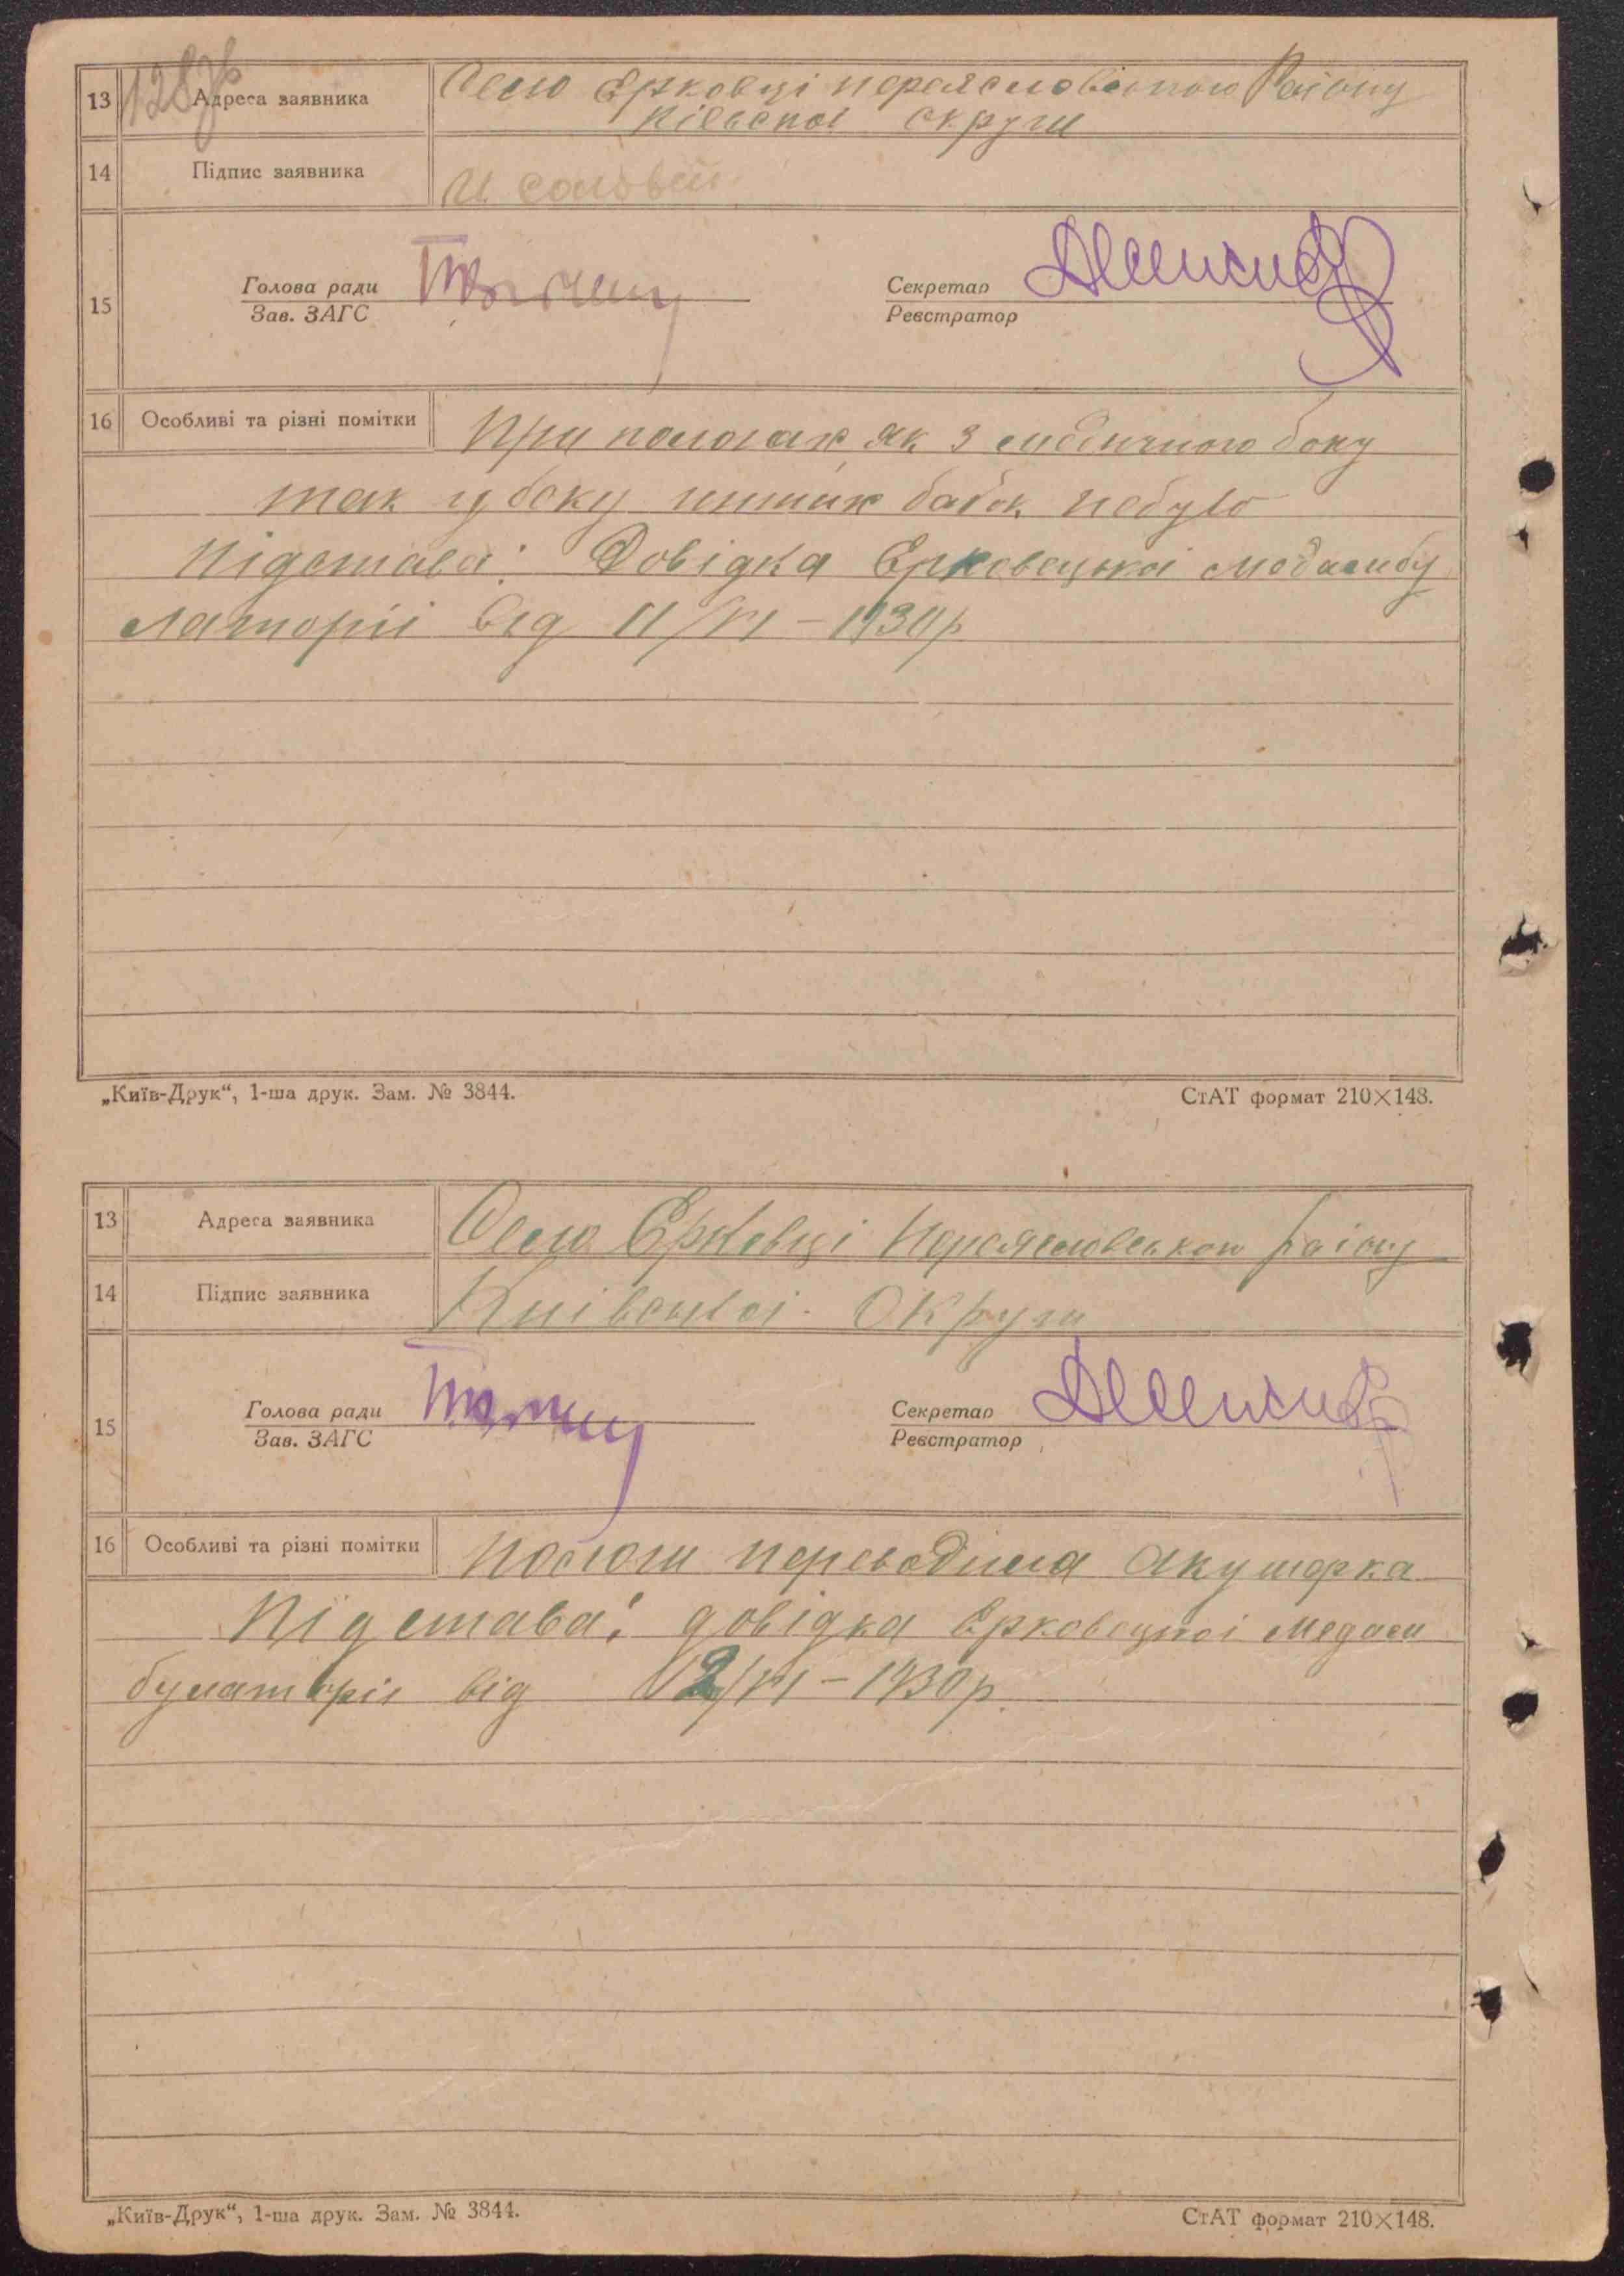 128зв
13 Адреса заявника Село Єрковці переяславського Району
Київської округи
14 Підпис заявника И Соловей
15 Голова ради
Зав. ЗАГС
Секретар
Реєстратор
16 Особливі та різні помітки При пологах як з медичного боку
так з боку инших бабок небуло
Підстава: Довідка Єрковецької медамбу
латорії від 11/VI – 1930 р
„Київ-Друк“, 1-ша друк. Зам. № 3844. СтАТ формат 210×148.
13 Адреса заявника Село Єрковці Переяславського району
14 Підпис заявника Київської Округи
15 Голова ради
Зав. ЗАГС
Секретар
Реєстратор
16 Особливі та різні помітки Пологи переводила Акушерка
Підстава: довідка Єрковецької медам
булаторії від 12/VI – 1930 р.
„Київ-Друк“, 1-ша друк. Зам. № 3844. СтАТ формат 210×148.